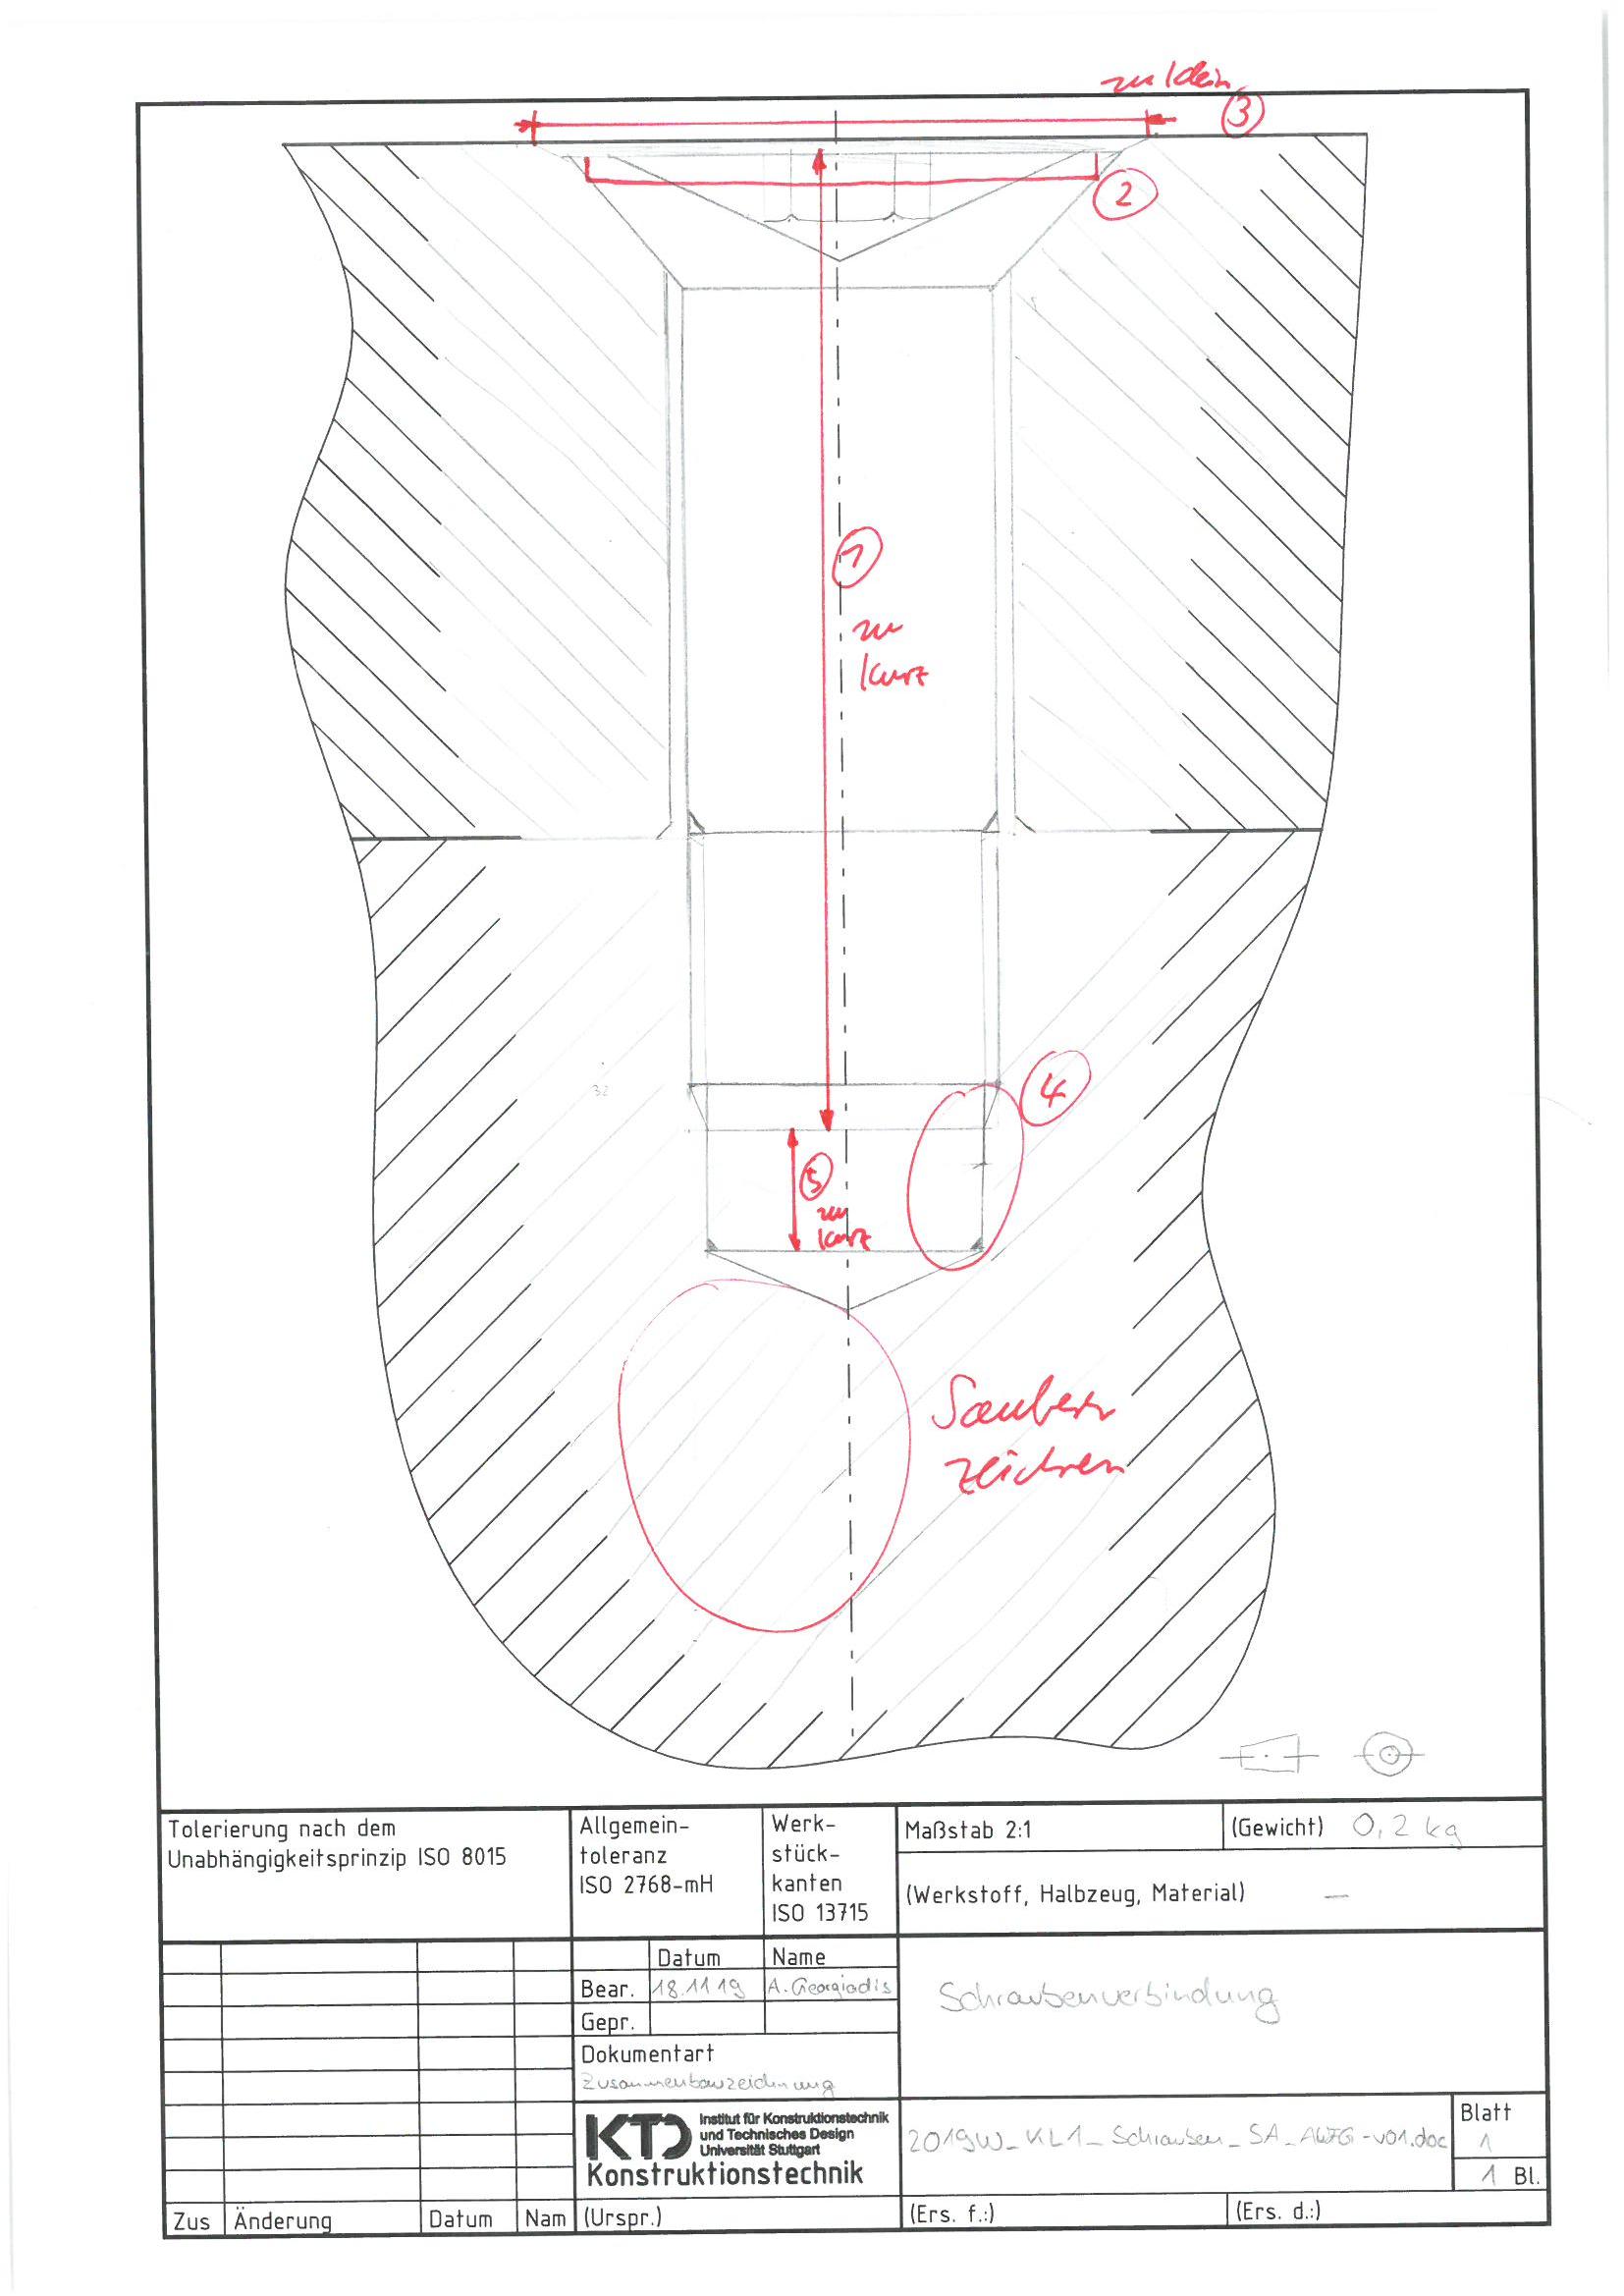 zu klein
3
2
1
zu
kurz
32
4
5
zu
kurz
Sauber
zeichnen
Tolerierung nach dem
Unabhängigkeitsprinzip ISO 8015
Allgemein-
toleranz
ISO 2768-mH
Werk-
stück-
kanten
ISO 13715
Maßstab 2:1
(Gewicht) 0,2 kg
(Werkstoff, Halbzeug, Material) —
Datum Name
Bear. 18.11.19 A. Georgiadis
Gepr.
Dokumentart
Zusammenbauzeichnung
Schraubenverbindung
KTD Institut für Konstruktionstechnik
und Technisches Design
Universität Stuttgart
Konstruktionstechnik
2019W_KL1_Schrauben_SA_-v01.doc
Blatt
1
1 Bl.
Zus Änderung Datum Nam (Urspr.) (Ers. f.:) (Ers. d.:)